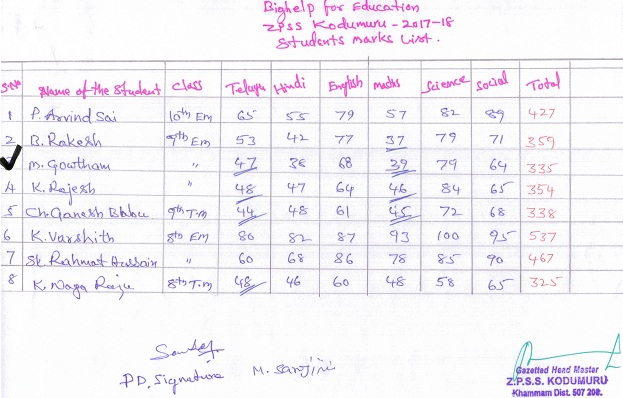 Bighelp for Education
ZPSS Kodumuru - 2017-18
Students Marks List.
S.No Name of the Student Class Telugu Hindi English maths Science Social Total
1 P. Arvind Sai 10th Em 65 55 79 57 82 89 427
2 B. Rakesh 9th Em 53 42 77 37 79 71 359
M. Goutham " 47 38 68 39 79 64 335
4 K. Rajesh " 48 47 64 46 84 65 354
5 Ch. Ganesh Babu 9th T.m 44 48 61 45 72 68 338
6 K. Varshith 8th Em 80 82 87 93 100 95 537
7 Sk. Rahmat Hussain " 60 68 86 78 85 90 467
8 K. Naga Raju 8th T.m 48 46 60 48 58 65 325
PD. Signature M. Sarojini
Gazetted Head Master
Z.P.S.S. KODUMURU
Khammam Dist. 507 208.